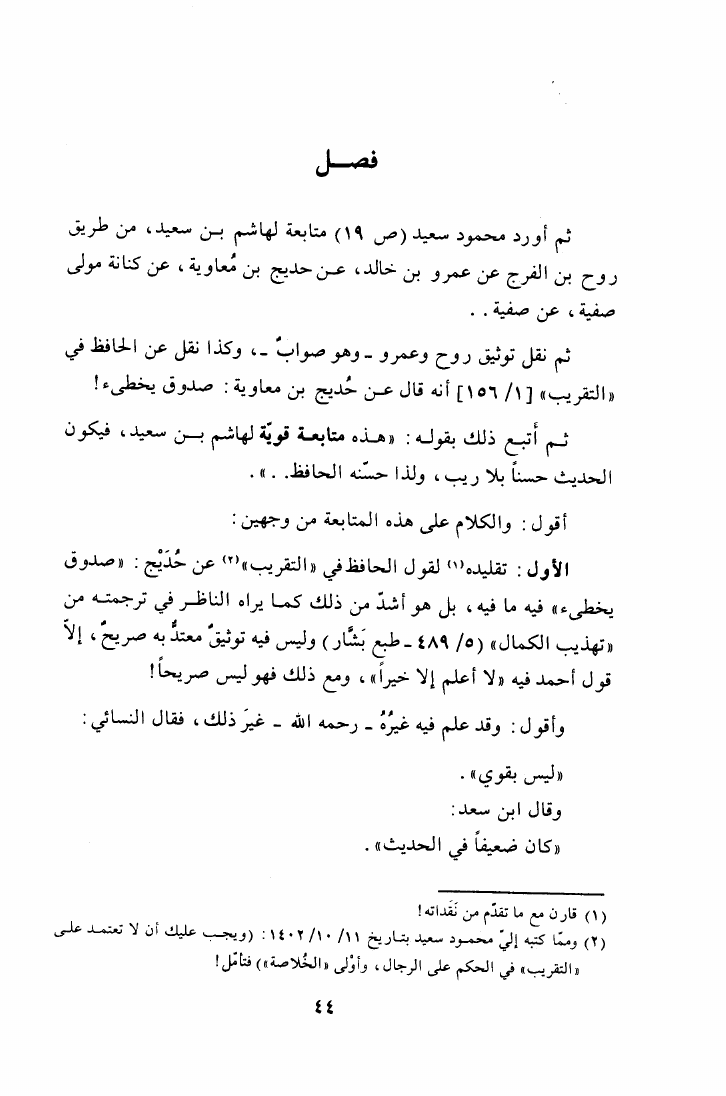 فصـــل
ثم أورد محمود سعيد (ص ١٩) متابعة لهاشم بـن سعيد، من طريق
روح بن الفرج عن عمرو بن خالد، عـن حديج بن مُعاوية، عن كنانة مولى
صفية، عن صفية . .
ثم نقل توثيق روح وعمرو ـ وهو صوابٌ ـ، وكذا نقل عن الحافظ في
«التقريب» [١/ ١٥٦] أنه قال عـن حُديج بن معاوية: صدوق يخطىء!
ثـم أَتبـع ذلك بقولـه: «هـذه متابعـة قويّة لهاشم بـــن سعيد، فيكون
الحديث حسناً بلا ريب، ولذا حسّنه الحافظ. . .».
أقول: والكلام على هذه المتابعة من وجهين:
الأول: تقليده(١) لقول الحافظ في «التقريب»(٢) عن حُدَيْج: «صدوق
يخطىء» فيه ما فيه، بل هو أشدّ من ذلك كمـا يراه الناظـر في ترجمتـه من
«تهذيب الكمال» (٥/ ٤٨٩ ـ طبع بَشَّار) وليس فيه توثيقٌ معتدٌّ به صريحٌ، إلاَّ
قول أحمد فيه «لا أعلم إلا خيراً»، ومع ذلك فهو ليس صريحاً!
وأقول: وقد علم فيه غيرُهُ ـ رحمه الله ـ غيرَ ذلك، فقال النسائي:
«ليس بقوي».
وقال ابن سعد:
«كان ضعيفاً في الحديث».
(١) قارن مع ما تقدّم من نَقَداته!
(٢) وممّا كتبه إليّ محمـود سعيد بتـاريخ ١١/ ١٠/ ١٤٠٢: (ويجـب عليك أن لا تعتمـد علـى
«التقريب» في الحكم على الرجال، وأوْلى «الخُلاصة») فتأمّل!
٤٤